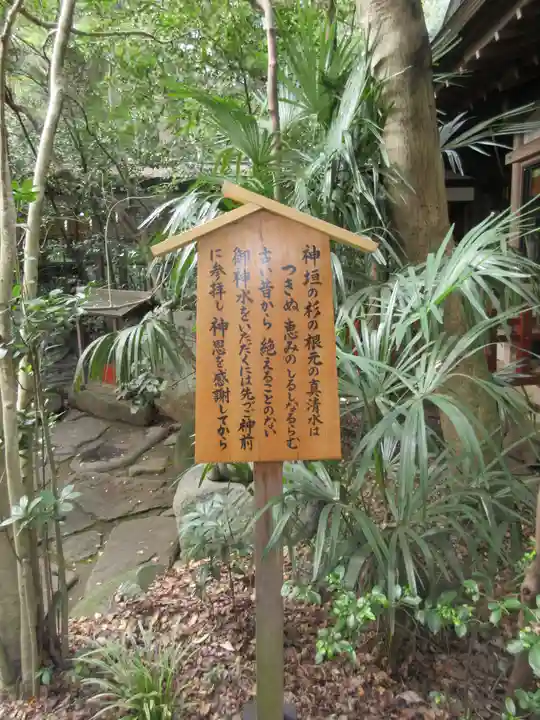 神垣の杉の根元の真清水は
つきぬ 恵みのしるしなるらむ
古い昔から 絶えることのない
御神水をいただくには先づご神前
に参拝し 神恩を感謝してから